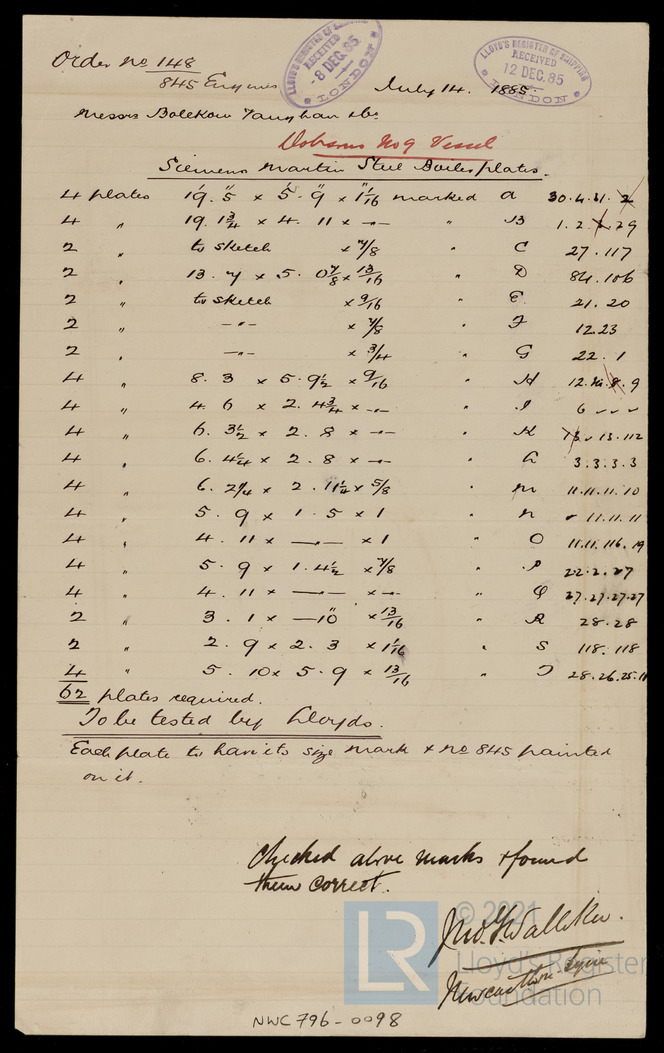 Order No 148
845 Engines
LLOYD'S REGISTER OF SHIPPING
RECEIVED
-8 DEC.85
LONDON
LLOYD'S REGISTER OF SHIPPING
RECEIVED
12 DEC.85
LONDON
July 14. 1885.
Messrs Bolckow Vaughan & Co
Dobsons No 9 Vessel
Siemens Martin Steel Boiler plates.
4 plates 19'. 5" × 5'. 9" × 1 1/16 marked A 30.4.41.2
4 " 19. 1 3/4 × 4. 11 × -"- " B 1.2. .29
2 " to sketch × 7/8 " C 27.117
2 " 13. 7 × 5. 0 7/8 × 13/16 " D 84.106
2 " to sketch × 9/16 " E 21.20
2 " -"- × 7/8 " F 12.23
2 " -"- × 3/4 " G 22.1
4 " 8. 3 × 5. 9 1/2 × 9/16 " H 12. .8.9
4 " 4. 6 × 2. 4 3/4 × -"- " I 6 " " "
4 " 6. 3 1/2 × 2. 8 × -"- " K 13.112
4 " 6. 4 1/4 × 2. 8 × -"- " L 3.3.3.3
4 " 6. 2 1/4 × 2. 11 1/4 × 5/8 " M 11.11.11.10
4 " 5. 9 × 1. 5 × 1 " N " 11.11.11
4 " 4. 11 × -"- × 1 " O 11.11.116.19
4 " 5. 9 × 1. 4 1/2 × 7/8 " P 22.2.
4 " 4. 11 × -"- × -"- " Q 27.27.27.27
2 " 3. 1 × -10" × 13/16 " R 28.28
2 " 2. 9 × 2. 3 × 1 1/16 " S 118.118
4 " 5. 10 × 5. 9 × 13/16 " T 28.26.25.11
62 plates required.
To be tested by Lloyds.
Each plate to have its size mark & No 845 painted
on it.
Checked above marks & found
them correct.
© 2021
Jno. G. Walliker.
LR
Lloyd's Register
Foundation
Newcastle on Tyne
NWC796-0098